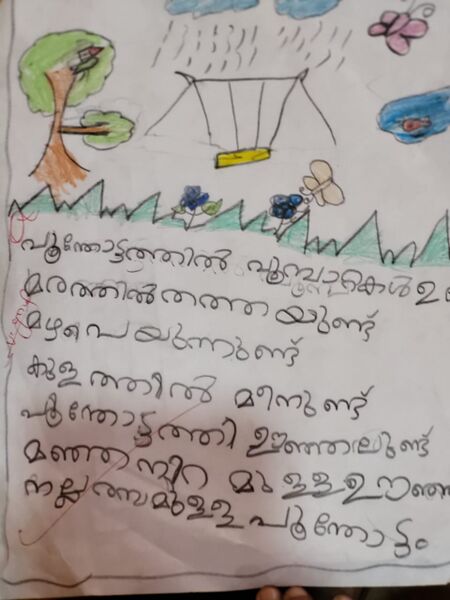 പൂന്തോട്ടത്തിൽ പൂമ്പാറ്റകൾ ഉ
മരത്തിൽ തത്തയുണ്ട്
മഴ പെയുന്നുണ്ട്
കുളത്തിൽ മീനുണ്ട്
പൂന്തോട്ടത്തി ഊഞ്ഞാലുണ്ട്
മഞ്ഞ നിറ മുള്ള ഊഞ്ഞ
പൂന്തോട്ടം